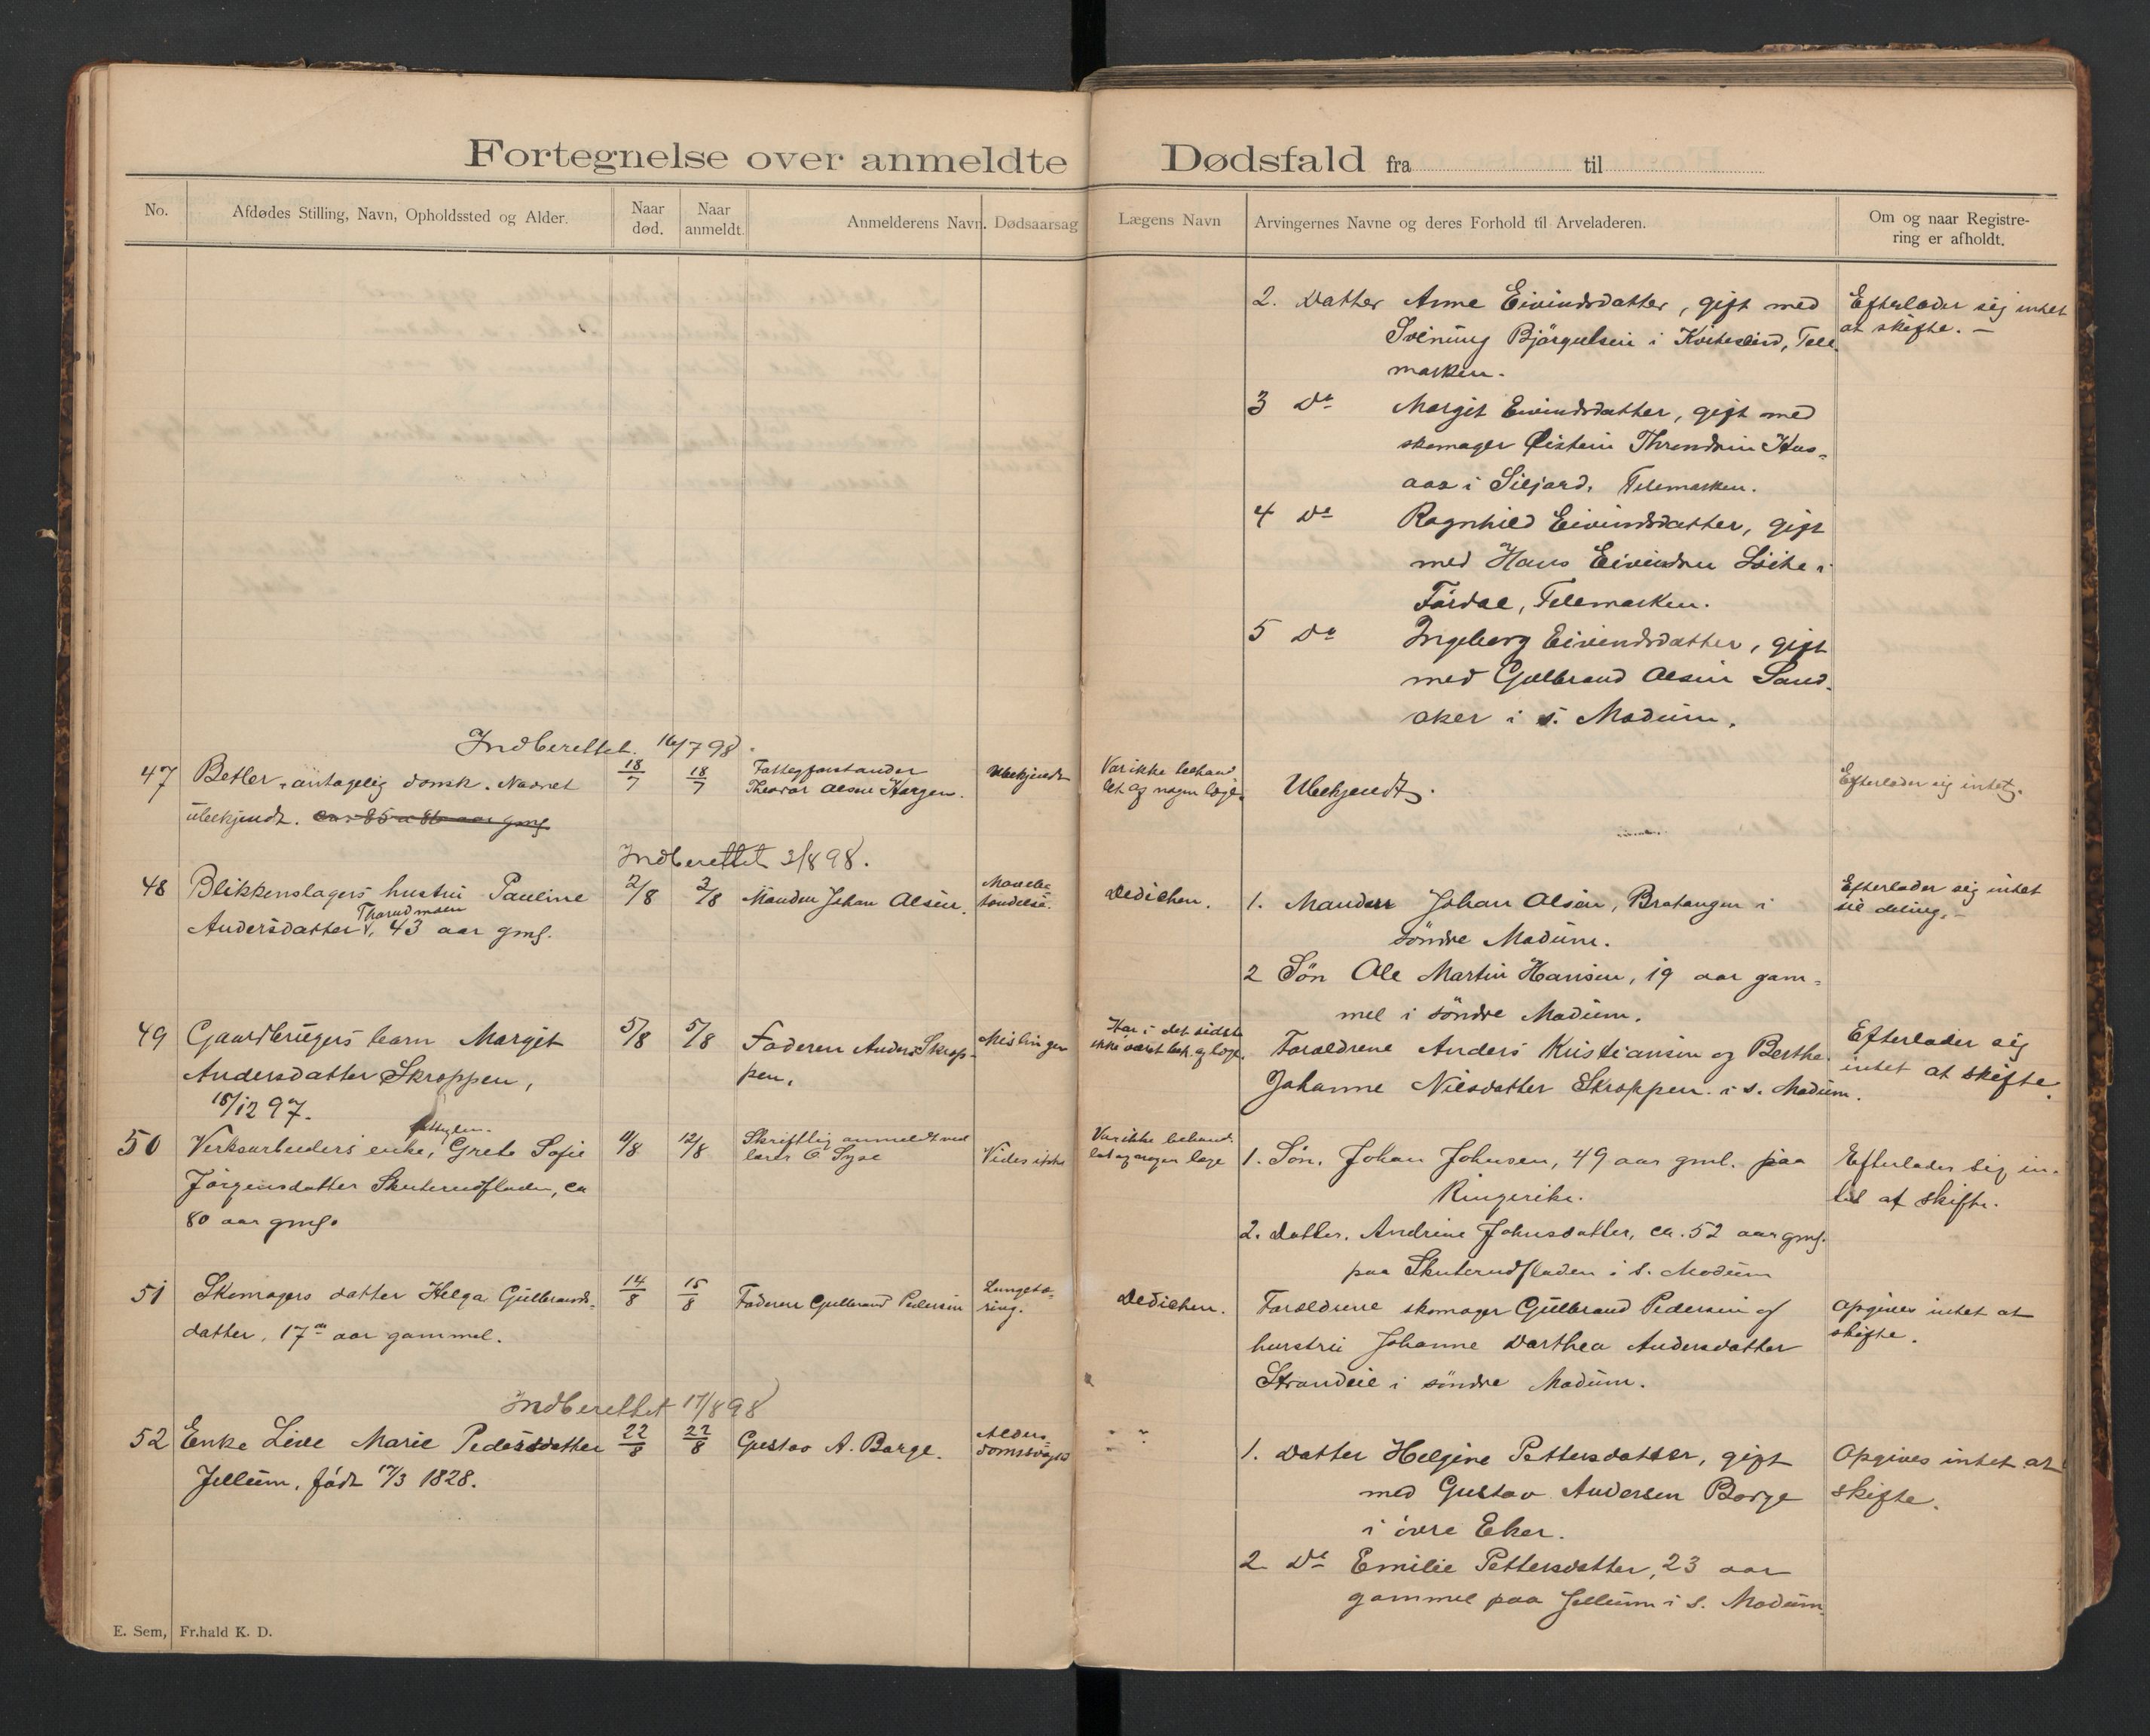 Fortegnelse over anmeldte Dødsfald fra til
No.
Afdødes Stilling, Navn, Opholdssted og Alder.
Naar
død.
Naar
anmeldt.
Anmelderens Navn.
Dødsaarsag
Lægens Navn
Arvingernes Navne og deres Forhold til Arveladeren.
Om og naar Registre-
ring er afholdt.
2. Datter Anne Eivindsdatter, gift med
Svenung Bjørgulsen i Kviteseid, Tele-
marken.
Efterlader sig intet
at skifte. –
3 Do Margit Eivindsdatter, gift med
skomager Øistein Throndsen Hus-
aas i Siljord, Telemarken.
4 Do Ragnhild Eivindsdatter, gift
med Hans Eivindsen i
Telemarken.
5 Do Ingeborg Eivindsdatter, gift
med Gulbrand Olsen Sand-
aker i s. Modum.
Indberettet 16/7 98.
47
Betler, antagelig dansk. Navnet
ubekjendt. ca. 85 a 86 aar gml
18/7
18/7
Fattigforstander
Theodor Olsen Horgen.
Ubekjendt
Var ikke behand
let af nogen læge.
Ubekjendt.
Efterlader sig intet.
Indberettet 3/8 98.
48
Blikkenslagers hustru Pauline
Thorudmoen
Andersdatter, 43 aar gml.
2/8
2/8
Manden Johan Olsen.
Dedichen.
1. Manden Johan Olsen, Bratangen i
søndre Modum.
2 Søn Ole Martin Hansen, 19 aar gam-
mel i søndre Modum.
Efterlader sig intet
til deling. –
49
Gaardbrugers barn Margit
Andersdatter Skroppen,
18/12 97.
5/8
5/8
Faderen Anders Skrop-
pen.
Meslinger
Har i det sidste
ikke været beh. af læge.
Forældrene Anders Kristiansen og Berthe
Johanne Nilsdatter Skroppen i s. Modum.
Efterlader sig
intet at skifte.
50
fattiglem.
Verksarbeiders enke, Grete Sofie
Jørgensdatter Skuterudfladen, ca
80 aar gml.
11/8
12/8
Skriftlig anmeldt ved
lærer O. Syse
Vides ikke
Var ikke behand-
let af nogen læge
1. Søn. Johan Johnsen, 49 aar gml. paa
Ringerike.
2. datter. Andrine Johnsdatter, ca. 52 aar gml.
paa Skuterudfladen i s. Modum
Efterlader sig in-
tet at skifte.
51
Skomagers datter Helga Gulbrands-
datter, 17 aar gammel.
14/8
15/8
Faderen Gulbrand Pedersen
Lungetæ-
ring.
Dedichen.
Forældrene skomager Gulbrand Pedersen og
hustru Johanne Dorthea Andersdatter
Strandeie i søndre Modum.
Opgives intet at
skifte.
Indberettet 17/8 98
52
Enke Live Marie Pedersdatter
Jellum, født 17/3 1828.
22/8
22/8
Gustav A. Borge.
Alder-
domssvaghed
" "
1. Datter Helgine Pettersdatter, gift
med Gustav Andersen Borge
i øvre Eker.
2 Do Emilie Pettersdatter, 23 aar
gammel paa Jellum i s. Modum.
Opgives intet at
skifte.
E. Sem, Fr.hald K. D.